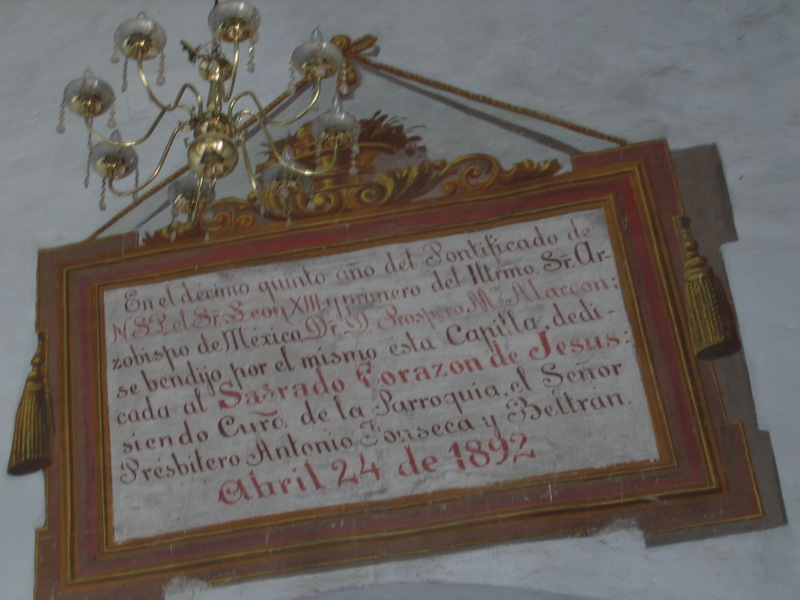 En el décimo quinto año del Pontificado de
N.S.P. el Sr. Leon XIII y primero del Iltrmo. Sr. Ar-
zobispo de México, Dr. D. Prospero Mª Alarcon:
se bendijo por el mismo esta Capilla, dedi-
cada al Sagrado Corazon de Jesus:
siendo Cura de la Parroquia, el Señor
Présbitero Antonio Fonseca y Beltran.
Abril 24 de 1892